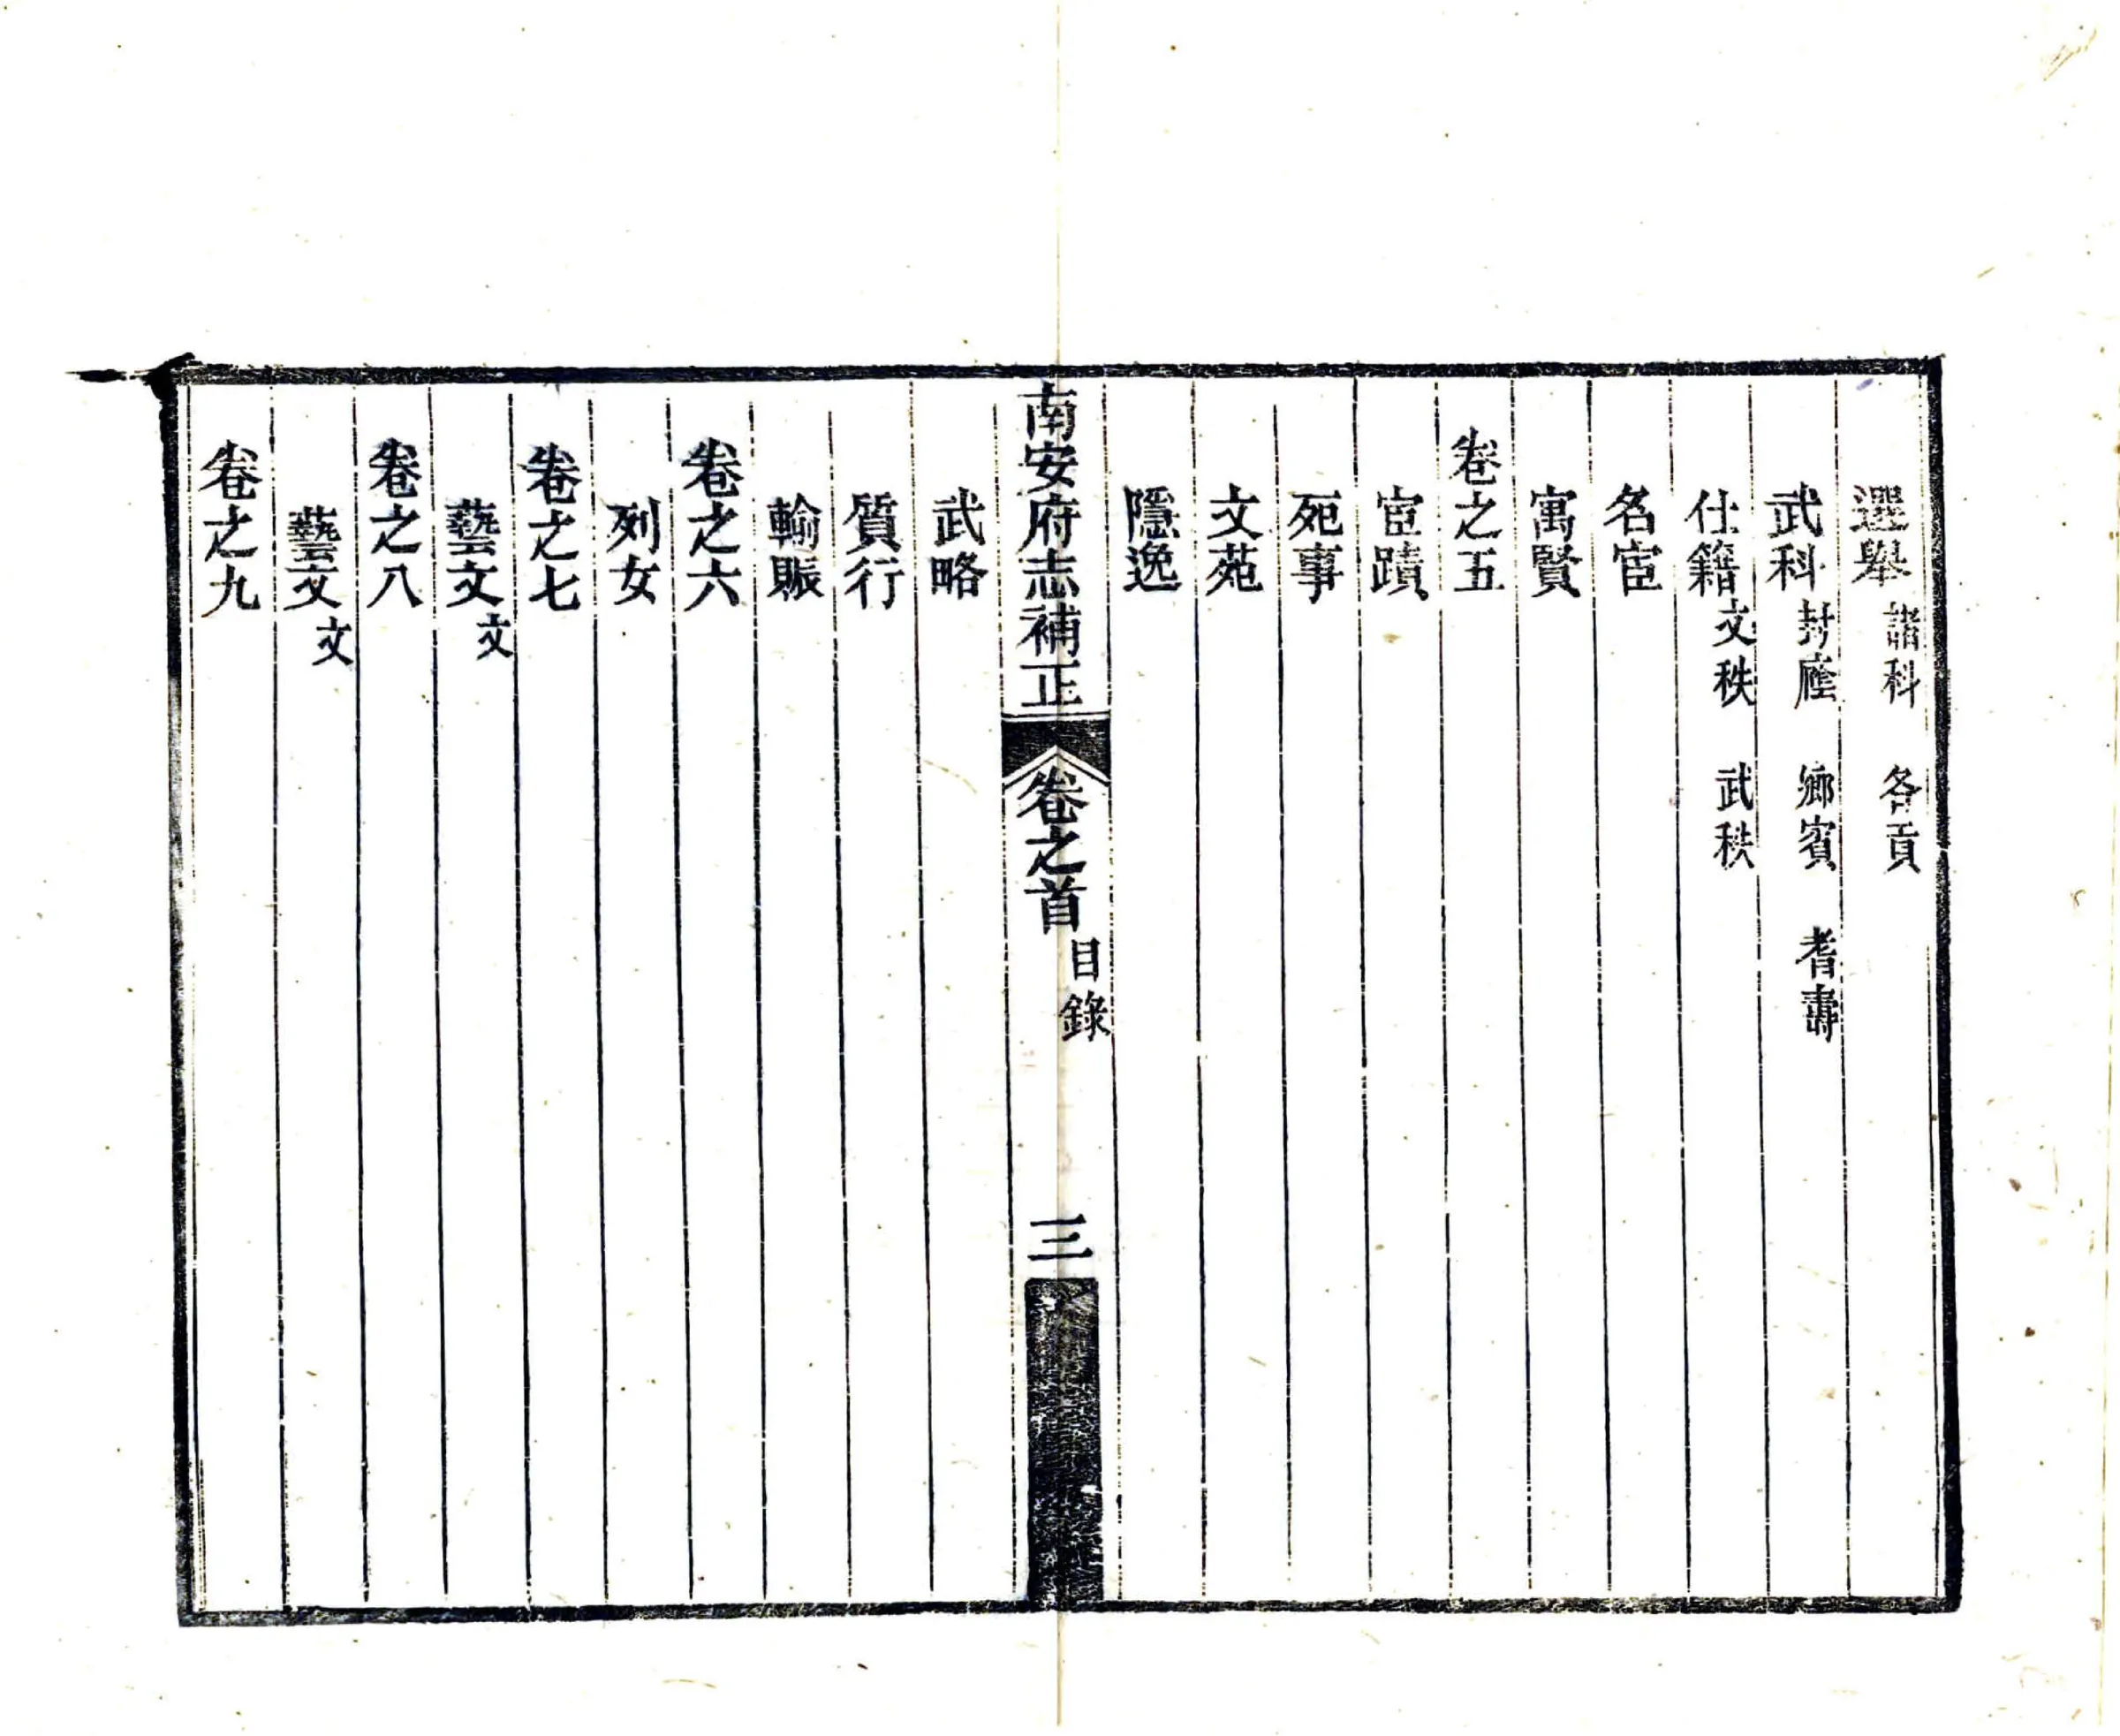 選舉 諸科 各貢
武科 封廕 鄉賓 耆壽
仕籍 文秩 武秩
名宦
寓賢
卷之五
宦蹟
死事
文苑
隱逸
南安府志補正 卷之首 目錄 三
武略
質行
輸賑
卷之六
列女
卷之七
藝文 文
卷之八
藝文 文
卷之九